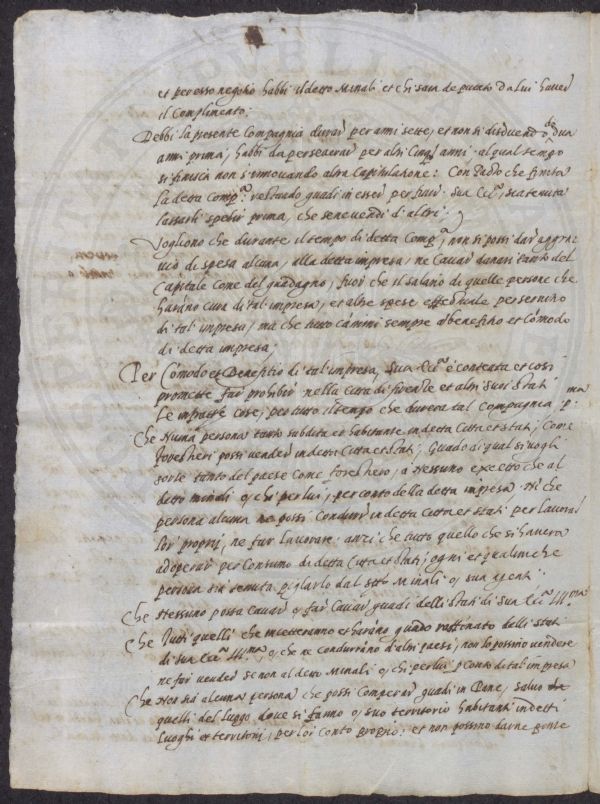 et per esso negotio habbi il detto Minali et chi sara deputato da lui haverà
il Complimento;
Debbi la presente Compagnia durar per anni sette, et non si disdicendo dua
anni prima, habbi da perseverar per altri Cinq. anni, al qual tempo
si finisca non rinovando altra Capitulatione: Con patto che finita
la detta Comp.ª restando guadi in esser per far. Sua Ecc.ª sia tenuta
lassarli spedir prima, che sene vendi d'altri.
Vogliono che durante il tempo di detta Comp.ª, non si possi dar aggra-
vio di spesa alcuna, alla detta impresa, ne Cavar danari tanto del
Capitale Come del guadagno, fuor che il salario di quelle persone che
haràno cura di tal impresa, et altre spese per servitio
di tal impresa, ma che tutto camini sempre a benefitio et Còmodo
di detta impresa;
Per Còmodo et Beneficio di tal impresa, Sua Ecc.ª è contenta et così
promette far prohibir nella Citta di firenze et altri suoi stati
Le infratte cose, per tutto il tempo che durera tal Compagnia, p.ma
Che Niuna persona tanto subdita et habitante in detta Citta et stati, Come
forestieri possi vender in detta Citta et stati, Guado di qual si vogli
sorte tanto del paese Come forestiero, à Nessuno eccetto che al
detto minali o chi per lui, per conto della detta impresa, Ne che
persona alcuna ne possi Condurre in detta Citta et stati per lavorar
lor proprij, ne far lavorare: anzi che tutto quello che si havera
adoperar per Consumo di detta Citta et stati, ogni et qualunche
persona sia tenuta pigliarlo dal detto Minali o sua agenti.
Che Nessuno possa Cavar o far Cavar guadi delli stati di Sua Ecc.ª Ill.ma
Che Tutti quelli che metteranno et haràno guado raffinato delli stati
di sua Ecc.ª Ill.ma, o che ne condurràno d'altri paesi, non lo possino vendere
ne far vender se non al detto Minali o chi per lui p Conto de tal impresa
Che Non sia alcuna persona che possi Comperar guadi in Pane, salvo
quelli del luogo dove si fanno o suo territorio habitanti in detti
luoghi et territorij, per lor Conto proprio: et non possino darne